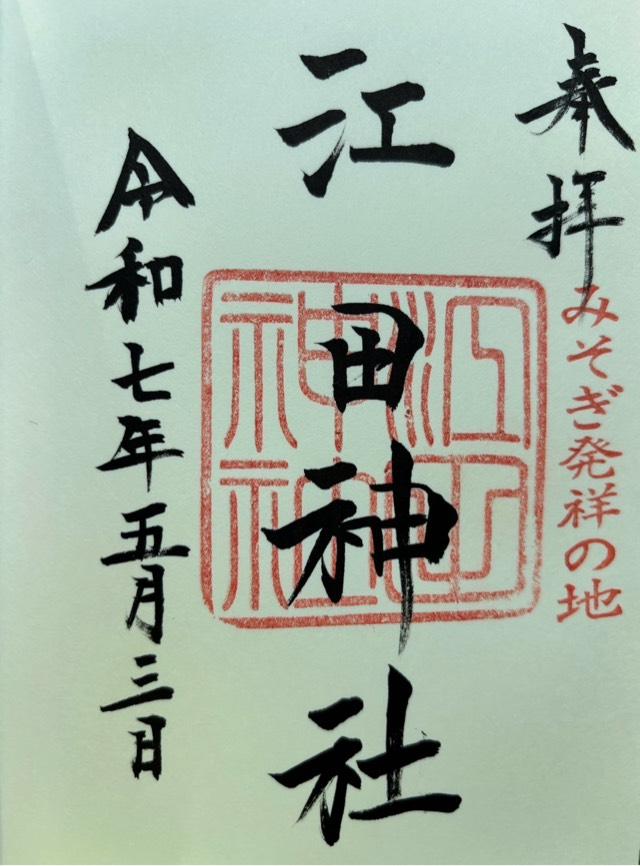 奉拝
みそぎ発祥の地
江田神社
江田神社
令和七年五月三日